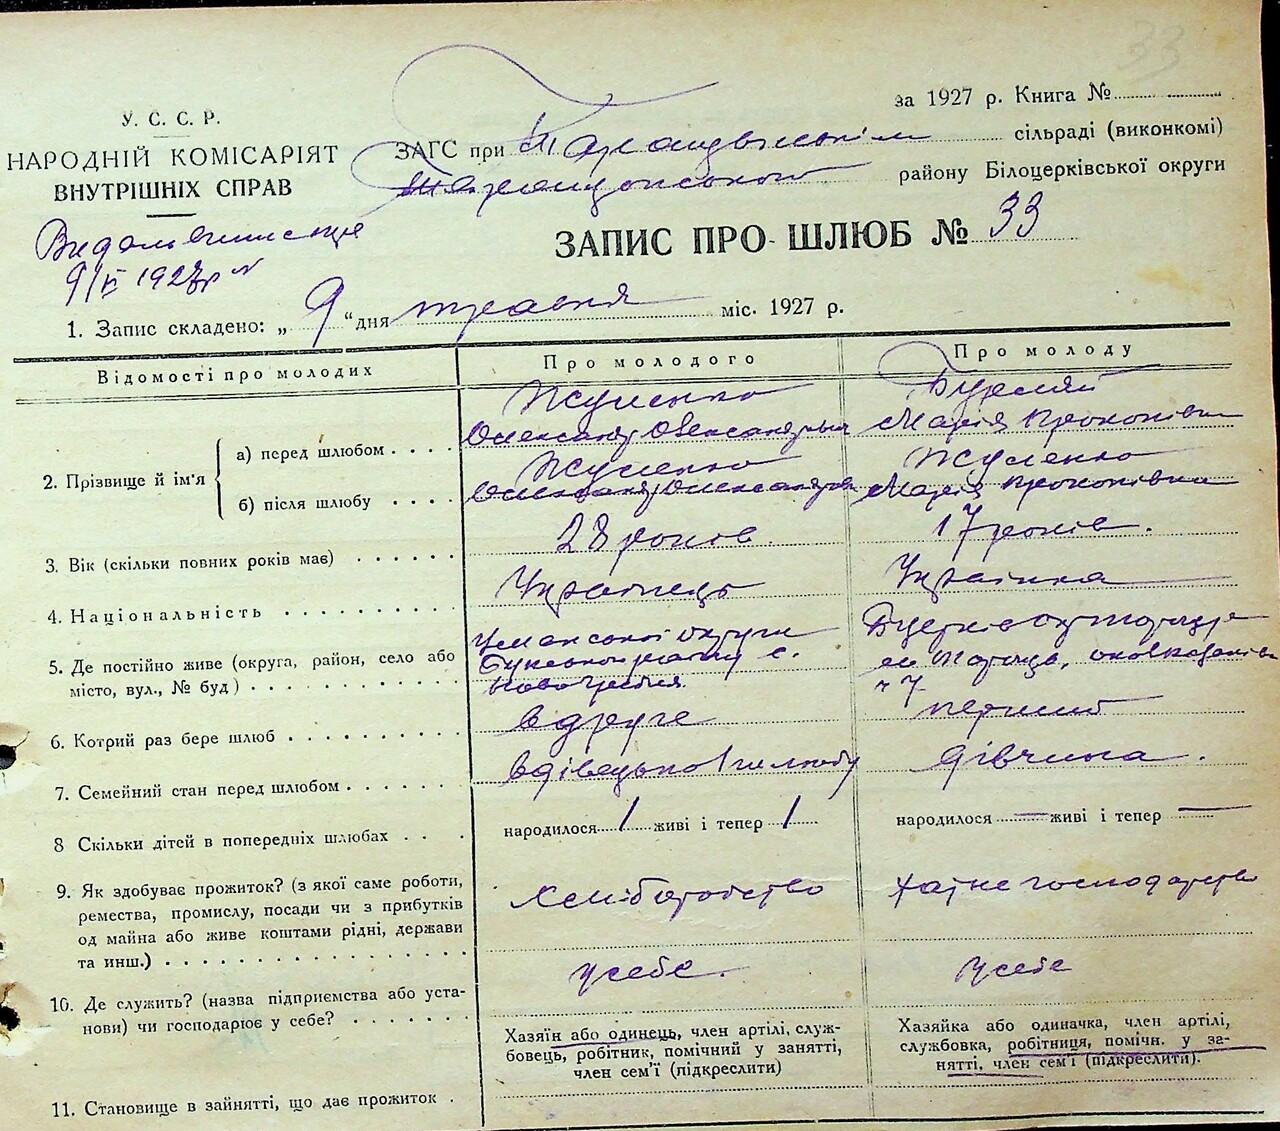 33
У. С. С. Р.
НАРОДНІЙ КОМІСАРІЯТ
ВНУТРІШНІХ СПРАВ
за 1927 р. Книга №
ЗАГС при Таращанськім сільраді (виконкомі)
Таращанського району Білоцерківської округи
9/V 1927р
ЗАПИС ПРО ШЛЮБ № 33
1. Запис складено: „ 9 “ дня травня міс. 1927 р.
Відомості про молодих
Про молодого
Про молоду
2. Прізвище й ім'я
а) перед шлюбом
Жуменко
Олександр Олександрович
Марія Прокопівна
б) після шлюбу
Жуменко
Олександр Олександрович
Жуменко
Марія Прокопівна
3. Вік (скільки повних років має)
28 років.
17 років.
4. Національність
Українець
Українка
5. Де постійно живе (округа, район, село або
місто, вул., № буд)
Уманської округи
Буцького району с.
Новогребля.
м. Тараща,
№ 7
6. Котрий раз бере шлюб
вдруге
перший
7. Семейний стан перед шлюбом
дівчина.
8 Скільки дітей в попередніх шлюбах
народилося 1 живі і тепер 1
народилося — живі і тепер —
9. Як здобуває прожиток? (з якої саме роботи,
ремества, промислу, посади чи з прибутків
од майна або живе коштами рідні, держави
та инш.)
хліборобство
хатнє господарство
10. Де служить? (назва підприємства або уста-
нови) чи господарює у себе?
у себе.
у себе
11. Становище в зайнятті, що дає прожиток
Хазяїн або одинець, член артілі, служ-
бовець, робітник, помічний у занятті,
член сем'ї (підкреслити)
Хазяйка або одиначка, член артілі,
службовка, робітниця, помічн. у за-
нятті, член сем'ї (підкреслити).